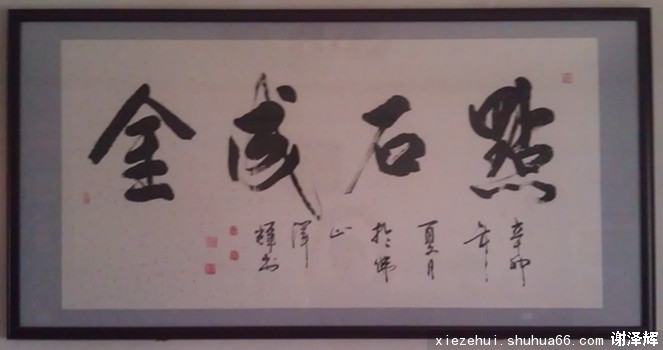 點石成金
辛卯
年
夏月
於佛
山
澤
輝书
xiezehui.shuhua66.com 谢泽辉